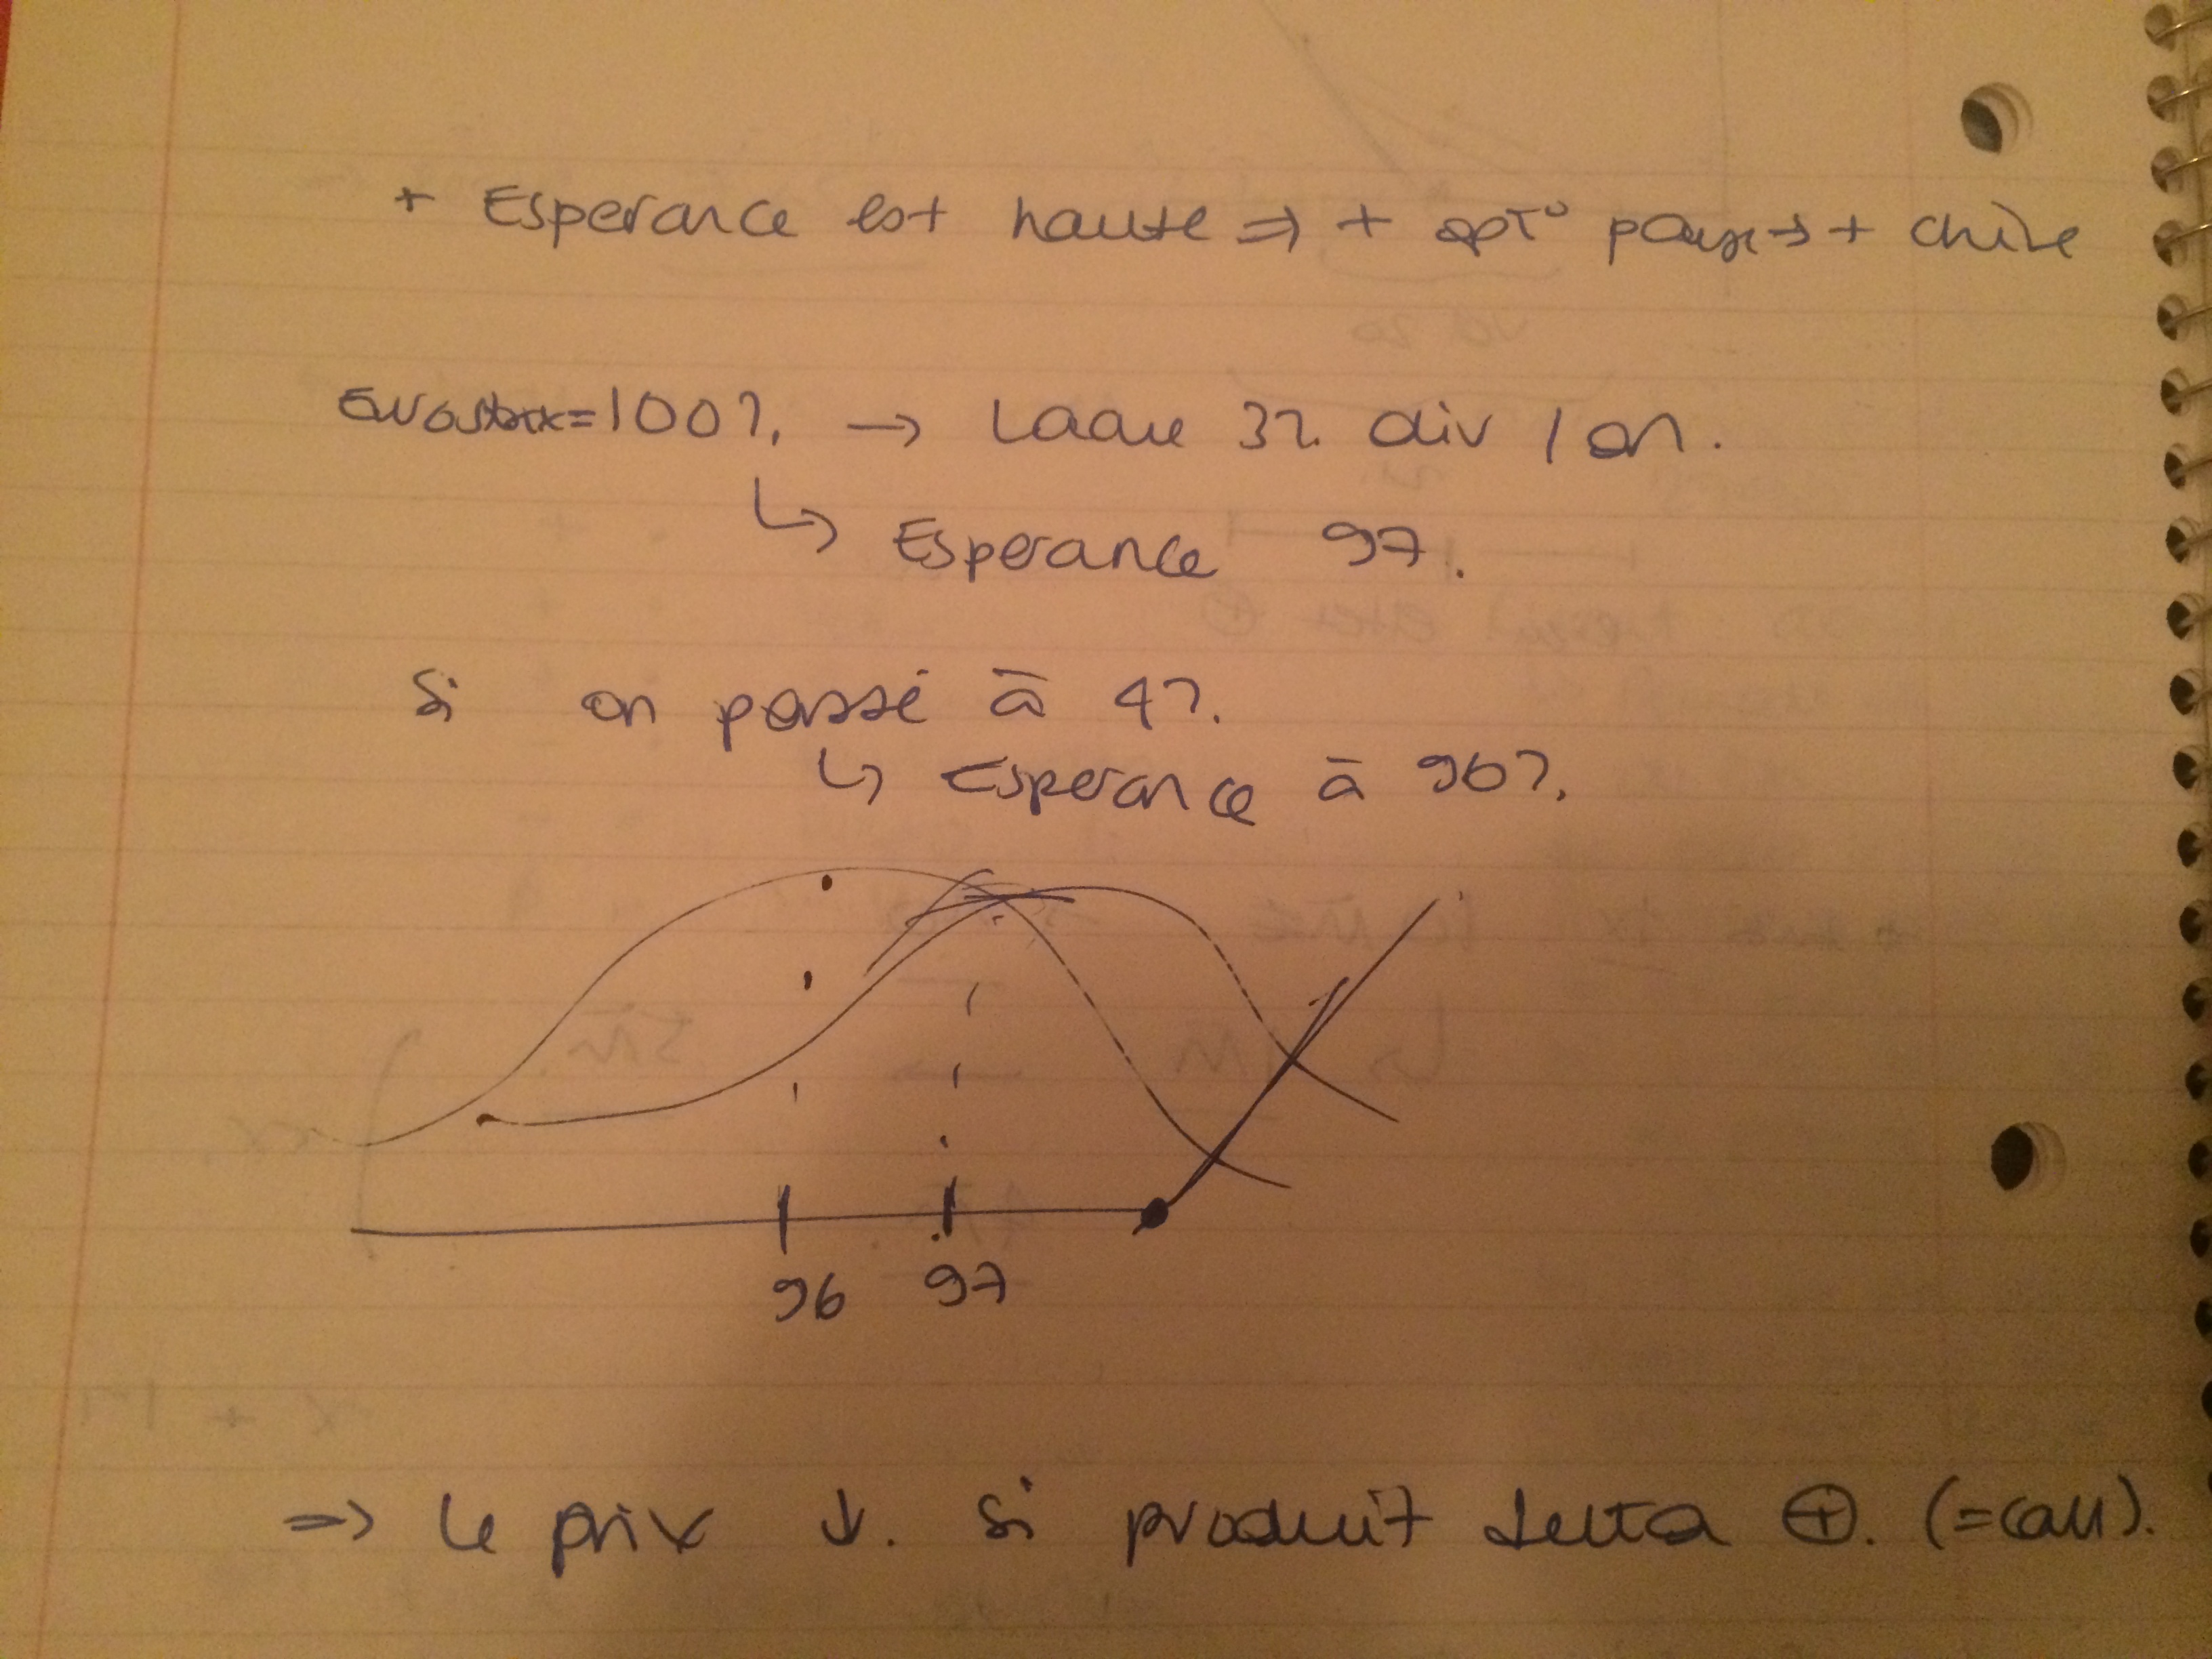 + Esperance est haute => + opt° paye → + chère
Eurostoxx = 100%. → 3% div / an.
↳ Esperance 97.
Si on passé à 4%.
↳ Esperance à 96%.
96 97
=> Le prix ↓. Si produit delta ⊕. (=call).